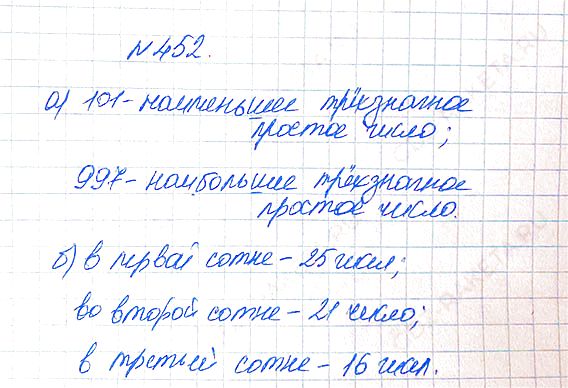 N452.
а) 101 - наименьшее трёхзначное
простое число;
997 - наибольшее трёхзначное
простое число.
б) в первой сотне - 25 чисел;
во второй сотне - 21 число;
в третьей сотне - 16 чисел.